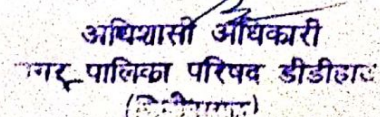 अधिशासी अधिकारी
नगर पालिका परिषद डीडीहाट